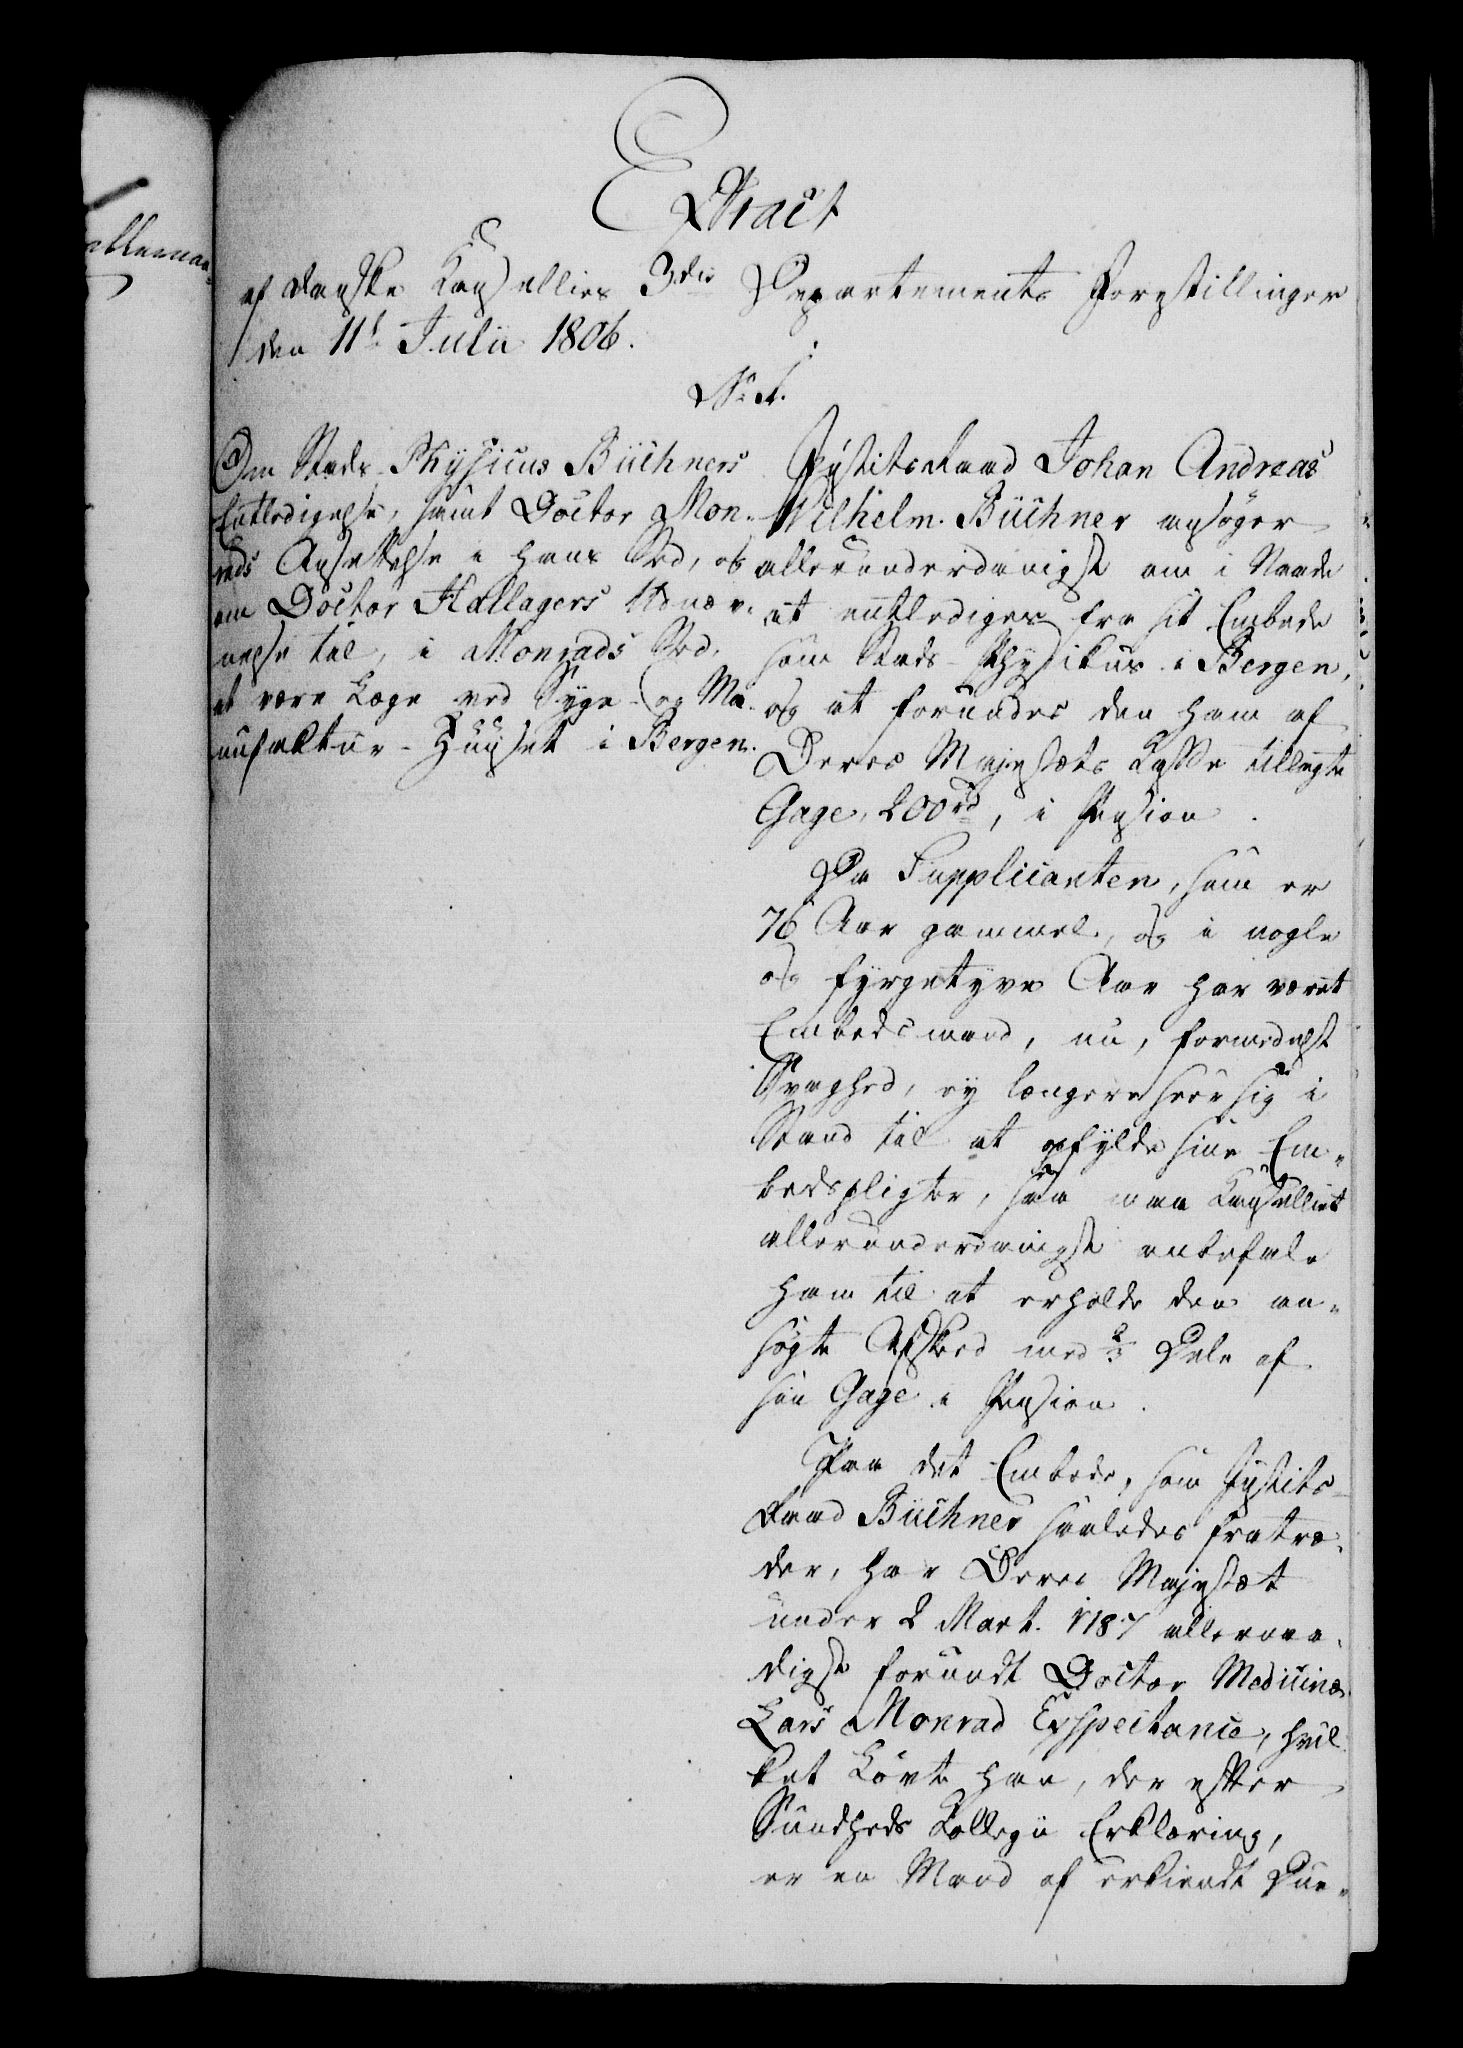 Extract
af danske Kancelliets 3die Departements Forestillinger
den 11t Julii 1806.
No 1.
Om Stads-Physicus Büchners
Entledigelse, samt Doctor Mon-
rads Ansettelse i hans Sted, og
om Doctor Hallagers Udnæv-
nelse til, i Monrads Sted,
at være Læge ved Syge- og Ma-
nufaktur-Huuset i Bergen.
Justitsraad Johan Andreas
Wilhelm Büchner ansøger
allerunderdanigst om i Naade
at entlediges fra sit Embede
som Stads-Physikus i Bergen,
og at forundes den ham af
Deres Majestæts Kasse tillagte
Gage, 200rd, i Pension.
Da Supplicanten, som er
76 Aar gammel, og i nogle
og fyrgetyve Aar har været
Embedsmand, nu, formedelst
Svaghed, ey længere seer sig i
Stand til at opfylde sine Em-
bedspligter, saa maa Kancelliet
allerunderdanigst anbefale
ham til at erholde den an-
søgte Afsked med 2/3 Dele af
sin Gage i Pension.
Paa det Embede, som Justits-
raad Büchner saaledes fratræ-
der, har Deres Majestæt
under 2 Mart. 1787 allernaa-
digst forundt Doctor Medicinæ
Lars Monrad Exspectance, hvil-
ket Løvte han, der efter
Sundheds Collegii Erklæring,
er en Mand af erkiendt Due-